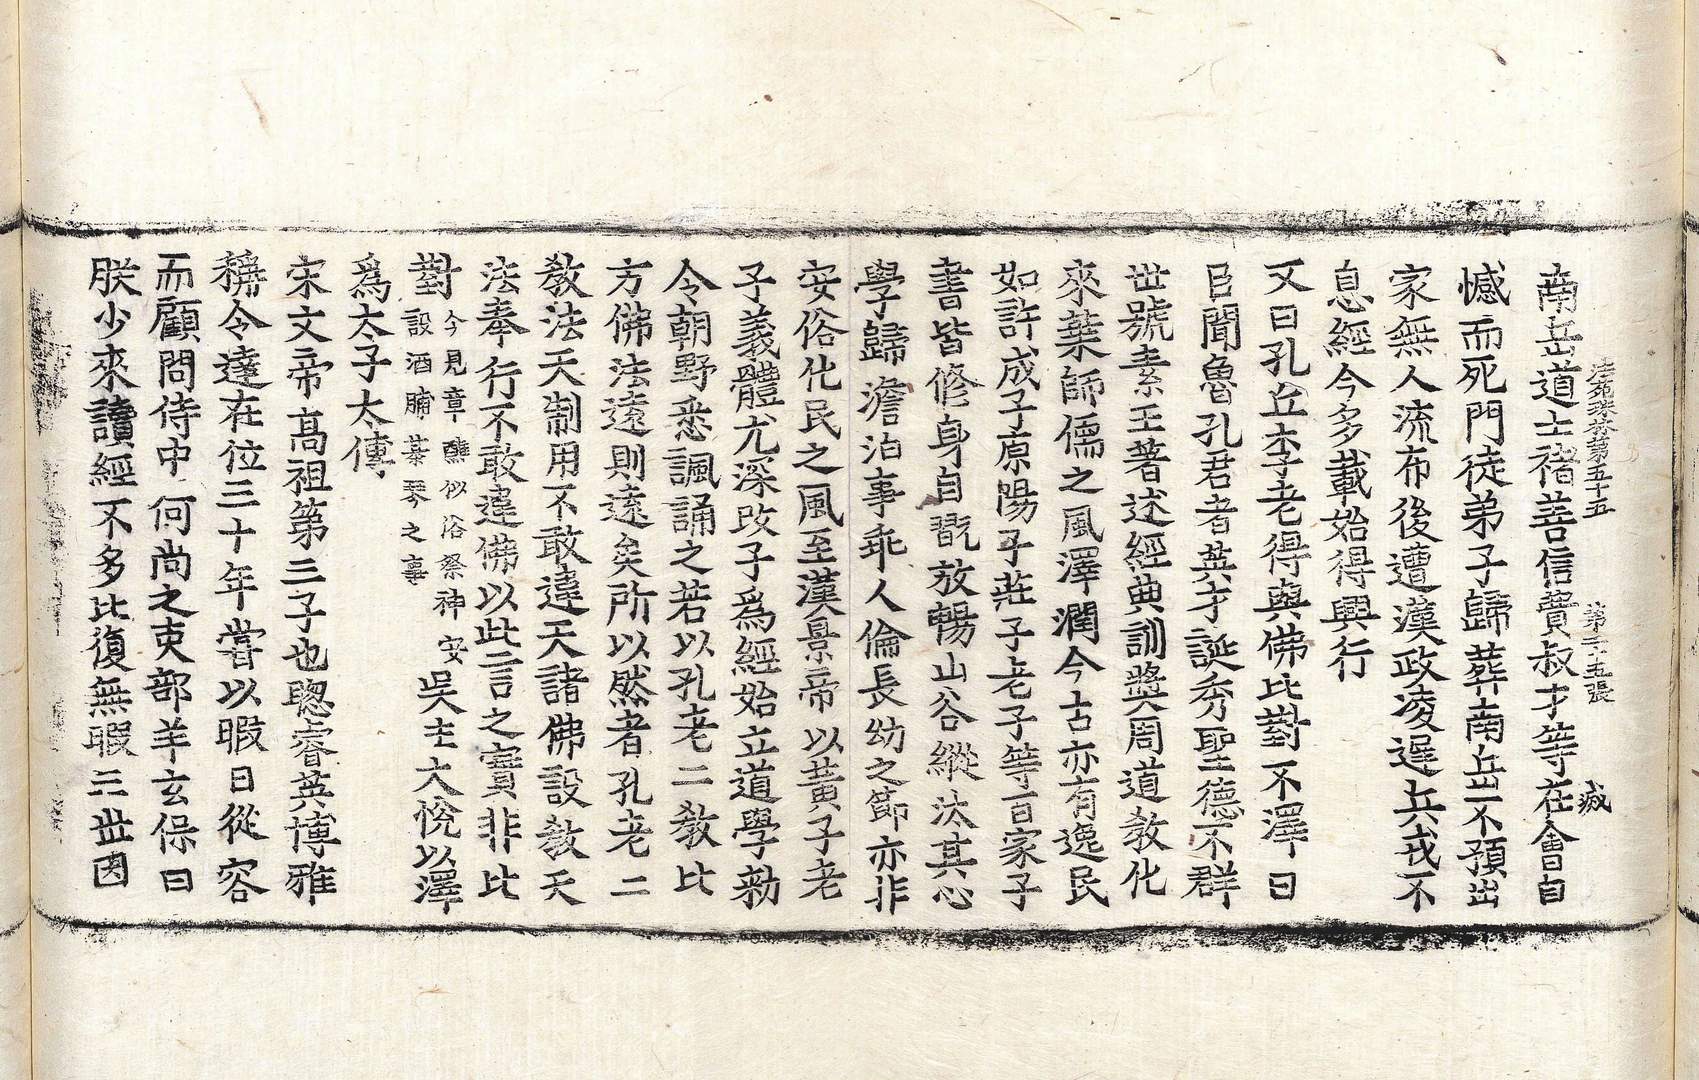 法苑珠林卷第五十五　第二十五張　感
南岳道士褚善信費叔才等在會自
憾而死門徒弟子歸葬南岳不預出
家無人流布後遭漢政凌遲兵戎不
息經今多載始得興行
又曰孔丘李老得與佛比對不澤曰
臣聞魯孔君者英才誕秀聖德不群
世號素王著述經典訓獎周道教化
來葉師儒之風澤潤今古亦有逸民
如許成子原陽子莊子老子等百家子
書皆修身自翫放暢山谷縱汰其心
學歸澹泊事乖人倫長幼之節亦非
安俗化民之風至漢景帝以黃子老
子義體尤深改子爲經始立道學勑
令朝野悉諷誦之若以孔老二教比
方佛法遠則遠矣所以然者孔老二
教法天制用不敢違天諸佛設教天
法奉行不敢違佛以此言之實非比
對今見章醮似俗祭神安設酒脯棊琴之事吳主大悅以澤
爲太子太傅
宋文帝高祖第三子也聰睿英博雅
稱令達在位三十年嘗以暇日從容
而顧問侍中何尚之吏部羊玄保曰
朕少來讀經不多比復無暇三世因